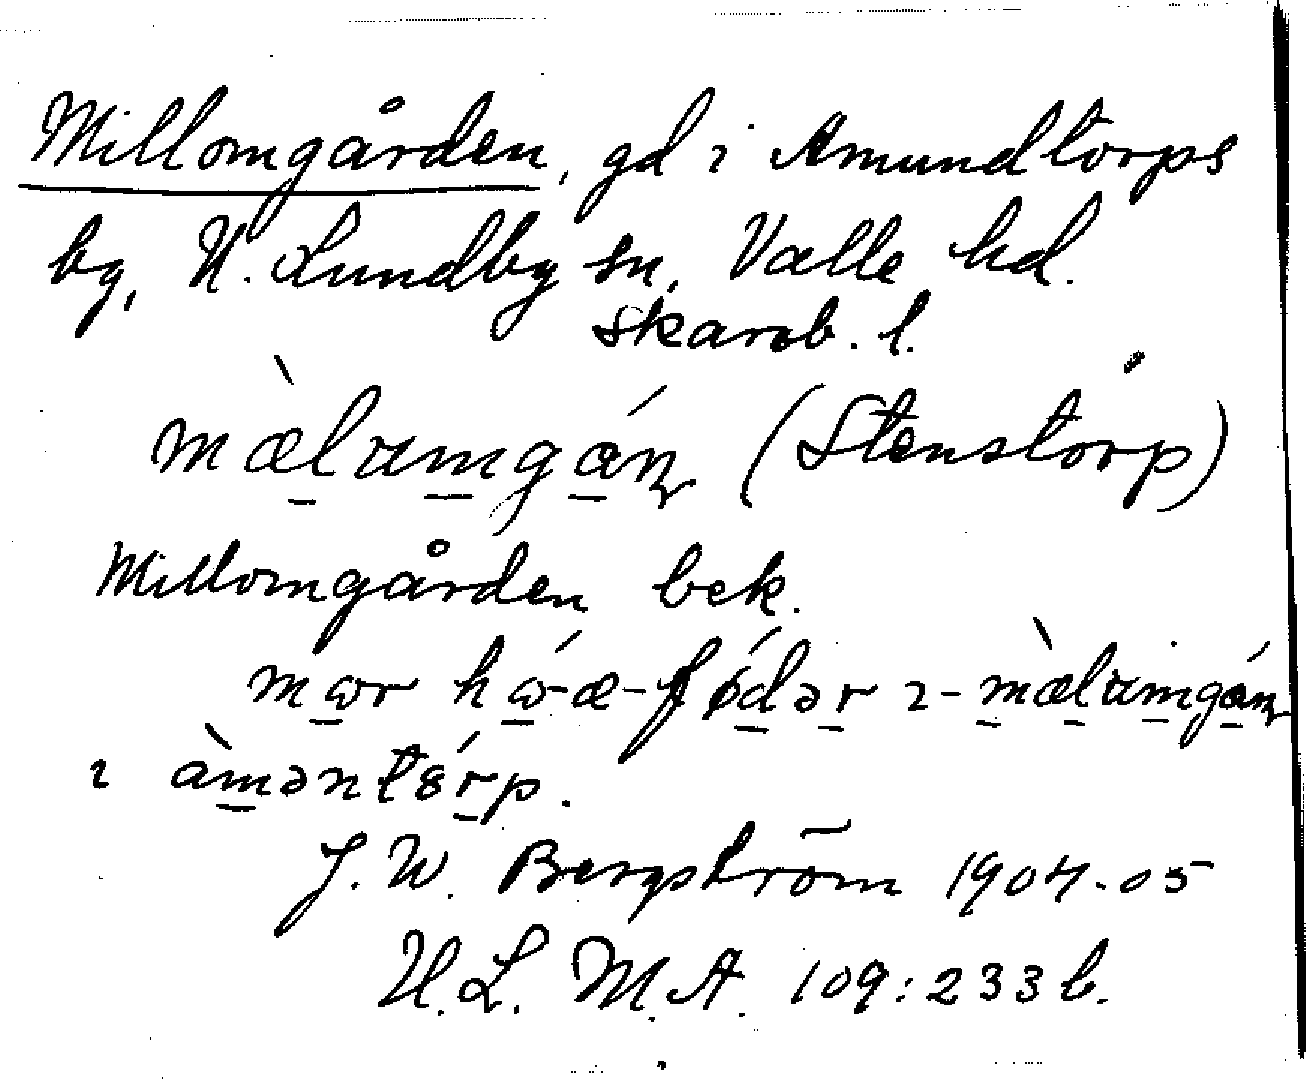 Millomgården, gd i Amundtorps
by, N. Lundby sn, Valle hd.
Skarab. l.
mæ̀lumgán (Stenstorp)
Millomgården bek.
mɷr hɷ́-æ-fǿdər ı-mæ̀lumgán
ı àmənt8́rp.
J. W. Bergström 1904-05
U.L.M.A. 109:233 b.